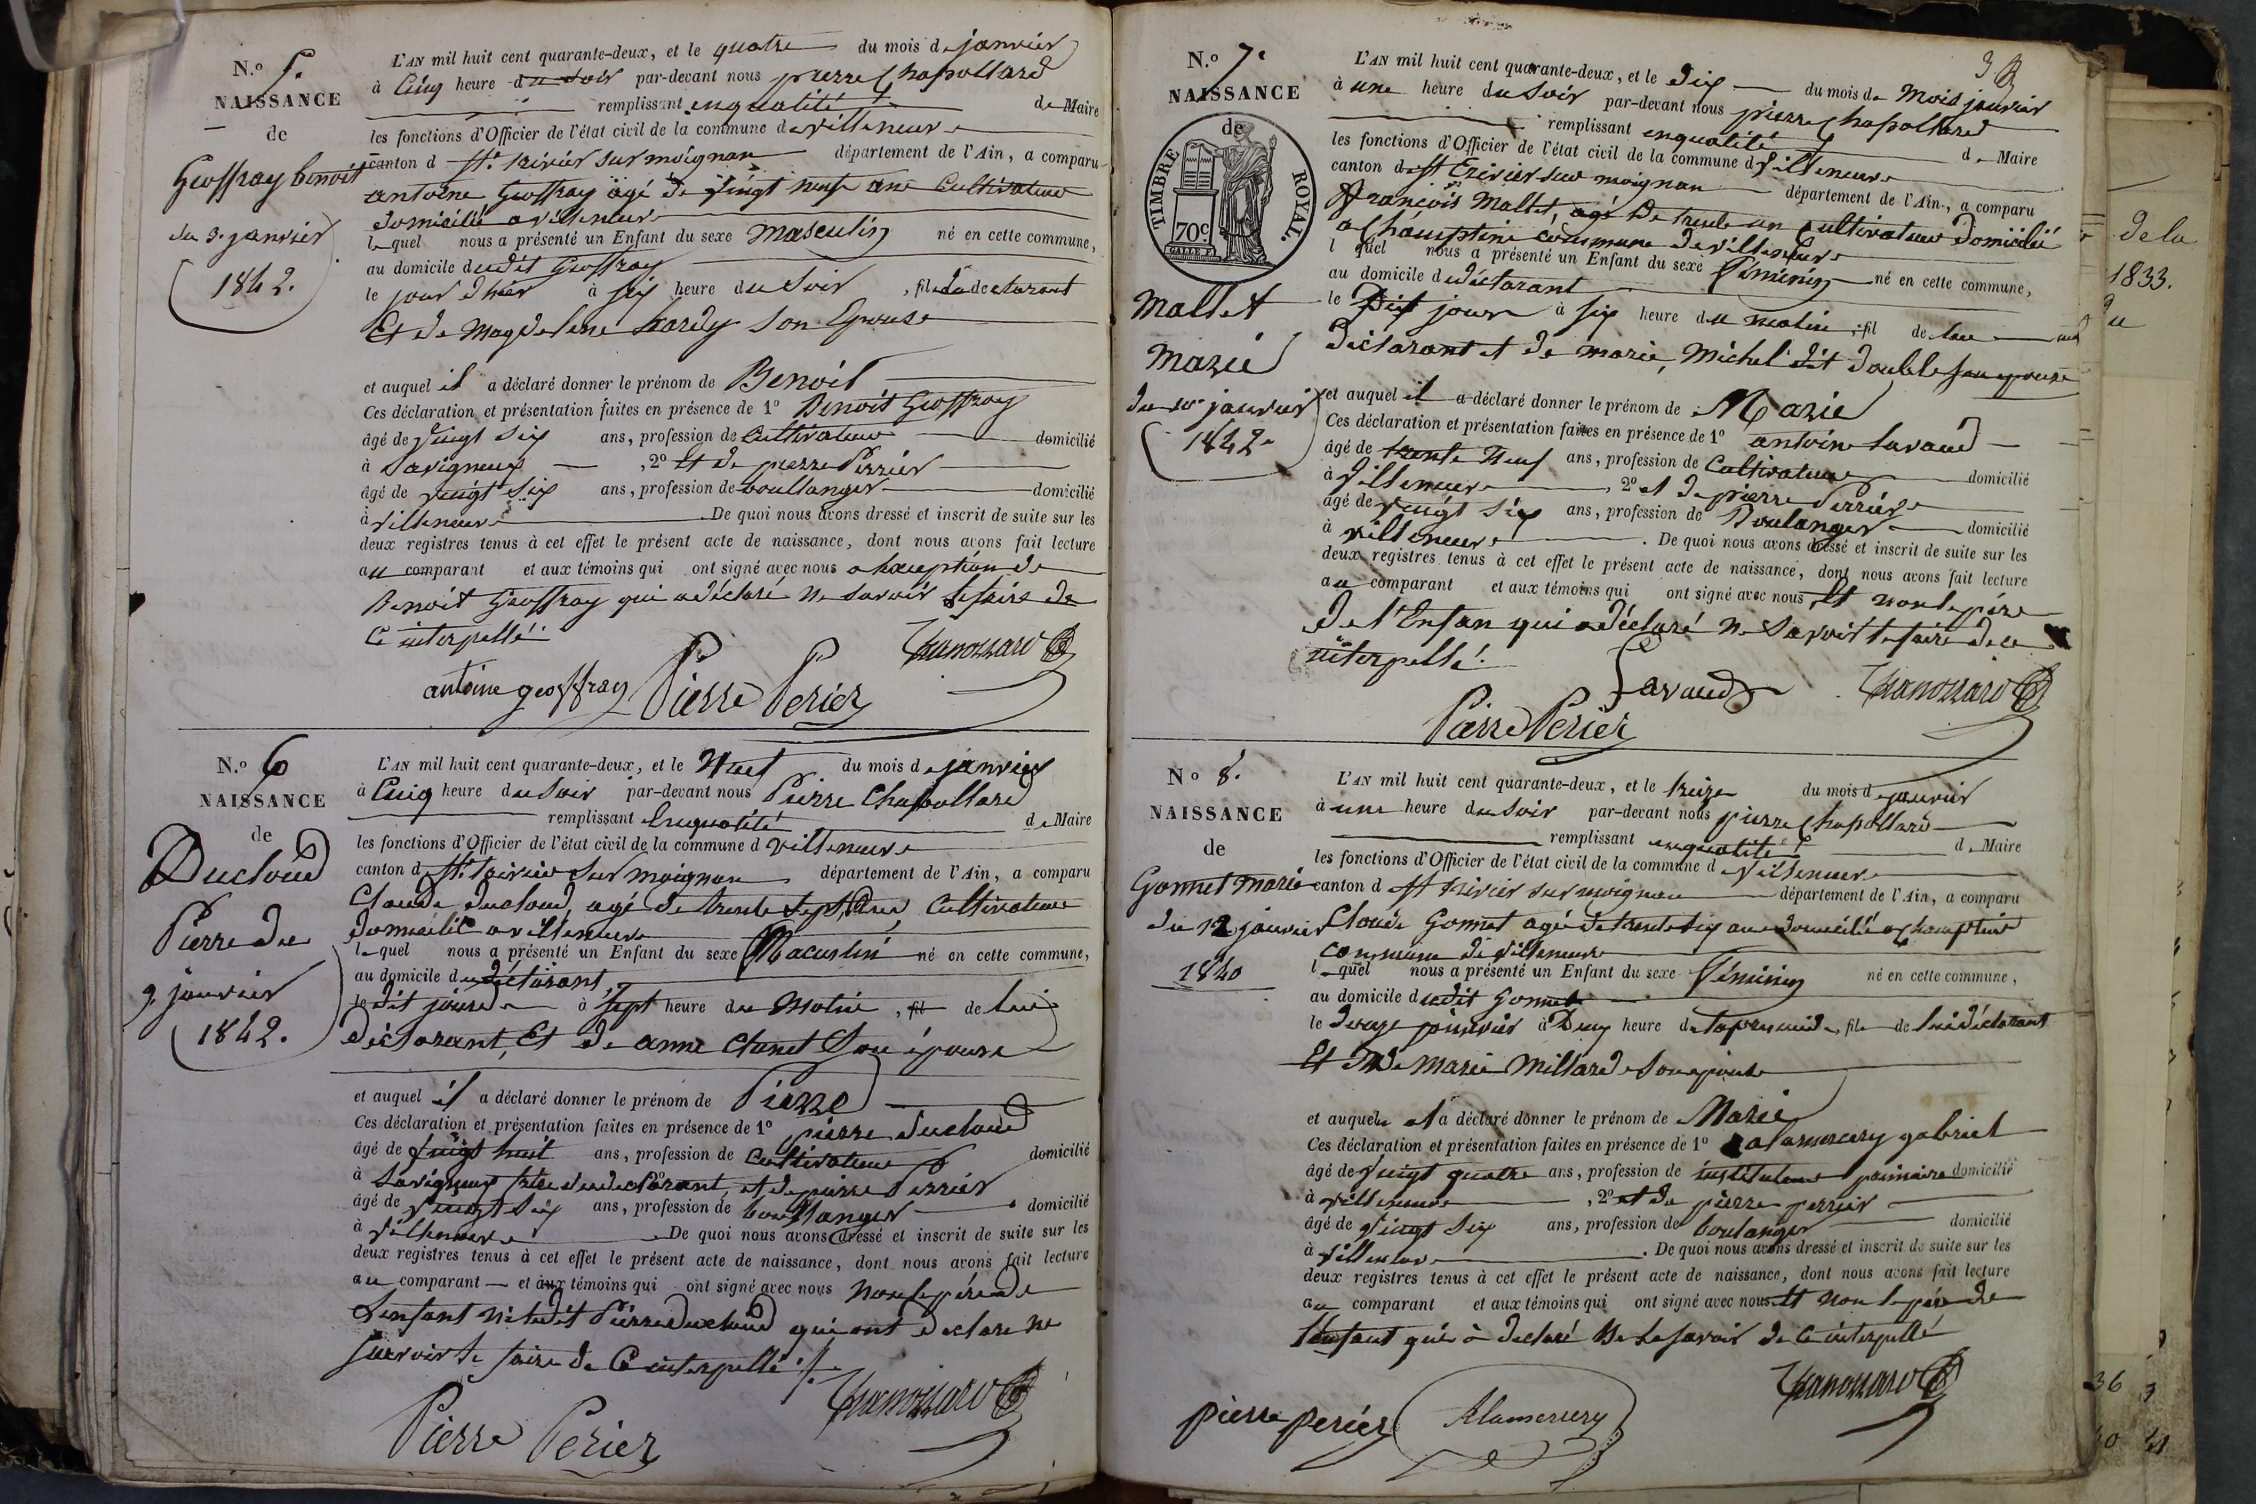 N.º 5.
NAISSANCE
de
Geoffray benoit
du 3. janvier
1842.
L'AN mil huit cent quarante-deux, et le quatre du mois de janvier
à Cinq heure du soir par-devant nous pierre Chapollard
remplissant enqualité de Maire
les fonctions d'Officier de l'état civil de la commune de villeneuve
canton d St. trivier sur moignan département de l'Ain, a comparu
antoine Geoffray agé de vingt neuf ans Cultivateur
domicilié a villeneuve
lequel nous a présenté un Enfant du sexe masculin né en cette commune,
au domicile dudit Geoffray
le jour d'hier à six heure du soir, fil du declarant
Et de Magdelene hardy son Epouse
et auquel il a déclaré donner le prénom de Benoit
Ces déclaration et présentation faites en présence de 1º Benoit Geoffray
âgé de vingt six ans, profession de Cultivateur domicilié
à Savigneux, 2º et de pierre Perrier
âgé de vingt six ans, profession de boullanger domicilié
à villeneuve De quoi nous avons dressé et inscrit de suite sur les
deux registres tenus à cet effet le présent acte de naissance, dont nous avons fait lecture
au comparant et aux témoins qui ont signé avec nous a l'exception de
Benoit Geoffray qui a déclaré ne savoir le faire de
ce interpellé
antoine geoffray Pierre Perier
N.º 6
NAISSANCE
de
Ducloud
Pierre du
9. janvier
1842.
L'AN mil huit cent quarante-deux, et le Neuf du mois de janvier
à Cinq heure du Soir par-devant nous Pierre Chapollard
remplissant Enqualité de Maire
les fonctions d'Officier de l'état civil de la commune d villeneuve
canton d St. trivier sur moignan département de l'Ain, a comparu
Claude ducloud, agé de trente sept ans, Cultivateur
domicilié a villeneuve
lequel nous a présenté un Enfant du sexe Maculin né en cette commune,
au domicile du déclarant,
le dit jour à Sept heure du Matin, fil de lui
déclarant, Et de anne Clanet Son épouse
et auquel il a déclaré donner le prénom de Pierre
Ces déclaration et présentation faites en présence de 1º pierre ducloud
âgé de vingt huit ans, profession de Cultivateur domicilié
à Savigneux frère du déclarant, et de pierre Perrier
âgé de vingt six ans, profession de boullanger domicilié
à villeneuve De quoi nous avons dressé et inscrit de suite sur les
deux registres tenus à cet effet le présent acte de naissance, dont nous avons fait lecture
au comparant et aux témoins qui ont signé avec nous non le père de
Lenfant ni ledit Pierre Ducloud qui ont declare ne
savoir le faire de Ce interpellé
Pierre Perier
3
N.º 7.
NAISSANCE
de
TIMBRE ROYAL.
70c.
Mallet
Marie
du 10. janvier
1842.
L'AN mil huit cent quarante-deux, et le dix du mois de Mois janvier
à une heure du Soir par-devant nous pierre Chapollard
remplissant enqualité de Maire
les fonctions d'Officier de l'état civil de la commune d villeneuve
canton de St Trivier sur moignan département de l'Ain, a comparu
François Mallet, agé de trente un cultivateur domicilié
a Champtein commune de villeneuve
l quel nous a présenté un Enfant du sexe Féminin né en cette commune,
au domicile du déclarant
le Dix jour à six heure du matin, fil de lui
déclarant et de marie, Michel dit double son epouse
et auquel il a déclaré donner le prénom de Marie
Ces déclaration et présentation faites en présence de 1º antoine Lavaud
âgé de trente Neuf ans, profession de Cultivateur domicilié
à Villeneuve, 2º et de pierre Perrier
âgé de vingt six ans, profession de Boulanger domicilié
à villeneuve. De quoi nous avons dressé et inscrit de suite sur les
deux registres tenus à cet effet le présent acte de naissance, dont nous avons fait lecture
au comparant et aux témoins qui ont signé avec nous Et non le père
de l'Enfan qui a déclaré ne Savoir le faire de ce
interpellé.
Lavaud
Pierre Perier
N.º 8.
NAISSANCE
de
Gonnet marie
du 12 janvier
1840
L'AN mil huit cent quarante-deux, et le treize du mois d janvier
à une heure du Soir par-devant nous pierre Chapollard
remplissant enqualité de Maire
les fonctions d'Officier de l'état civil de la commune d villeneuve
canton d St trivier sur moignan département de l'Ain, a comparu
Claude Gonnet agé de trente six ans domicilié a Champtein
commune de villeneuve
l quel nous a présenté un Enfant du sexe Féminin né en cette commune,
au domicile dudit Gonnet
le douze janvier à Deux heure de lapremidi, fil de lui déclarant
Et de Marie Millard son epouse
et auquel il a déclaré donner le prénom de Marie
Ces déclaration et présentation faites en présence de 1º alamercery gabriel
âgé de vingt quatre ans, profession de instituteur primaire domicilié
à villeneuve, 2º et de pierre perrier
âgé de vingt six ans, profession de boulanger domicilié
à villeneuve. De quoi nous avons dressé et inscrit de suite sur les
deux registres tenus à cet effet le présent acte de naissance, dont nous avons fait lecture
au comparant et aux témoins qui ont signé avec nous Et non le père de
lenfant qui à declaré Ne le savoir de ce interpellé
pierre perier Alamercery
de la
1833.
36